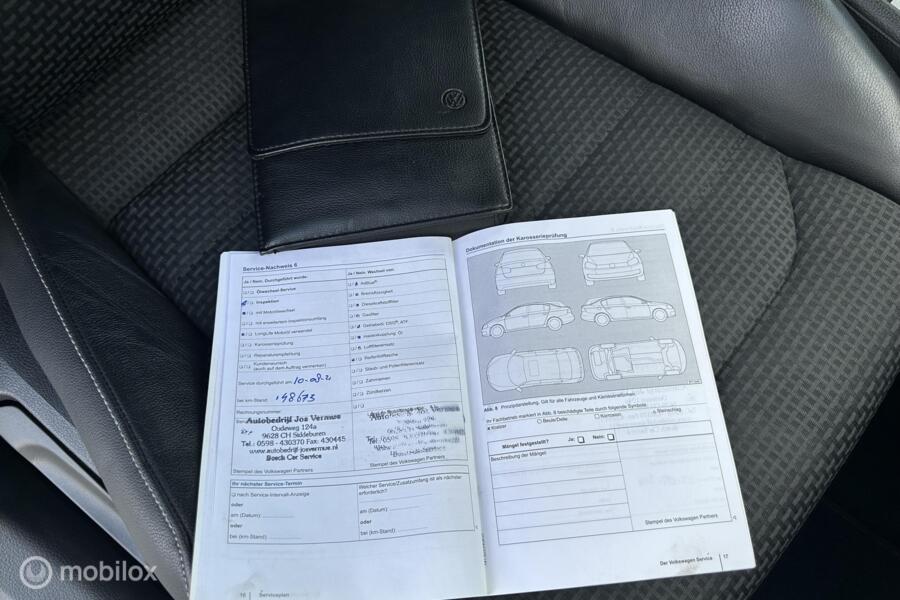 Service-Nachweis 6
Ja / Nein: Durchgeführt wurde:
Ölwechsel-Service
Inspektion
mit Motorölwechsel
mit erweitertem Inspektionsumfang
LongLife Motoröl verwendet
Karosserieprüfung
Reparaturempfehlung
Kundenwunsch
(auch auf dem Auftrag vermerken)
Service durchgeführt am:
bei km-Stand: 148673
Rechnungsnummer:
Autobedrijf Jos Vermue
Oudeweg 124a
9628 CH Siddeburen
Tel.: 0598 - 430370 Fax: 430445
www.autobedrijf-josvermue.nl
Bosch Car Service
Stempel des Volkswagen Partners
Ja / Nein: Wechsel von:
AdBlue®
Bremsflüssigkeit
Dieselkraftstofffilter
Gasfilter
Getriebeöl: DSG®, ATF
Luftfiltereinsatz
Reifenfüllflasche
Staub- und Pollenfiltereinsatz
Zahnriemen
Zündkerzen
Stempel des Volkswagen Partners
Ihr nächster Service-Termin
nach Service-Intervall-Anzeige
oder
am (Datum):
oder
bei (km-Stand):
Welcher Service/Zusatzumfang ist als nächster
erforderlich?
am (Datum):
oder
bei (km-Stand):
16 Serviceplan
Dokumentation der Karosserieprüfung
Abb. 8 Prinzipdarstellung. Gilt für alle Fahrzeuge und Karosserieformen.
Ihr Fachbetrieb markiert in Abb. 8 beschädigte Teile durch folgende Symbole:
Kratzer Beule/Delle Korrosion Steinschlag
Mängel festgestellt? Ja: Nein:
Beschreibung der Mängel:
Stempel des Volkswagen Partners
Der Volkswagen Service 17
mobilox